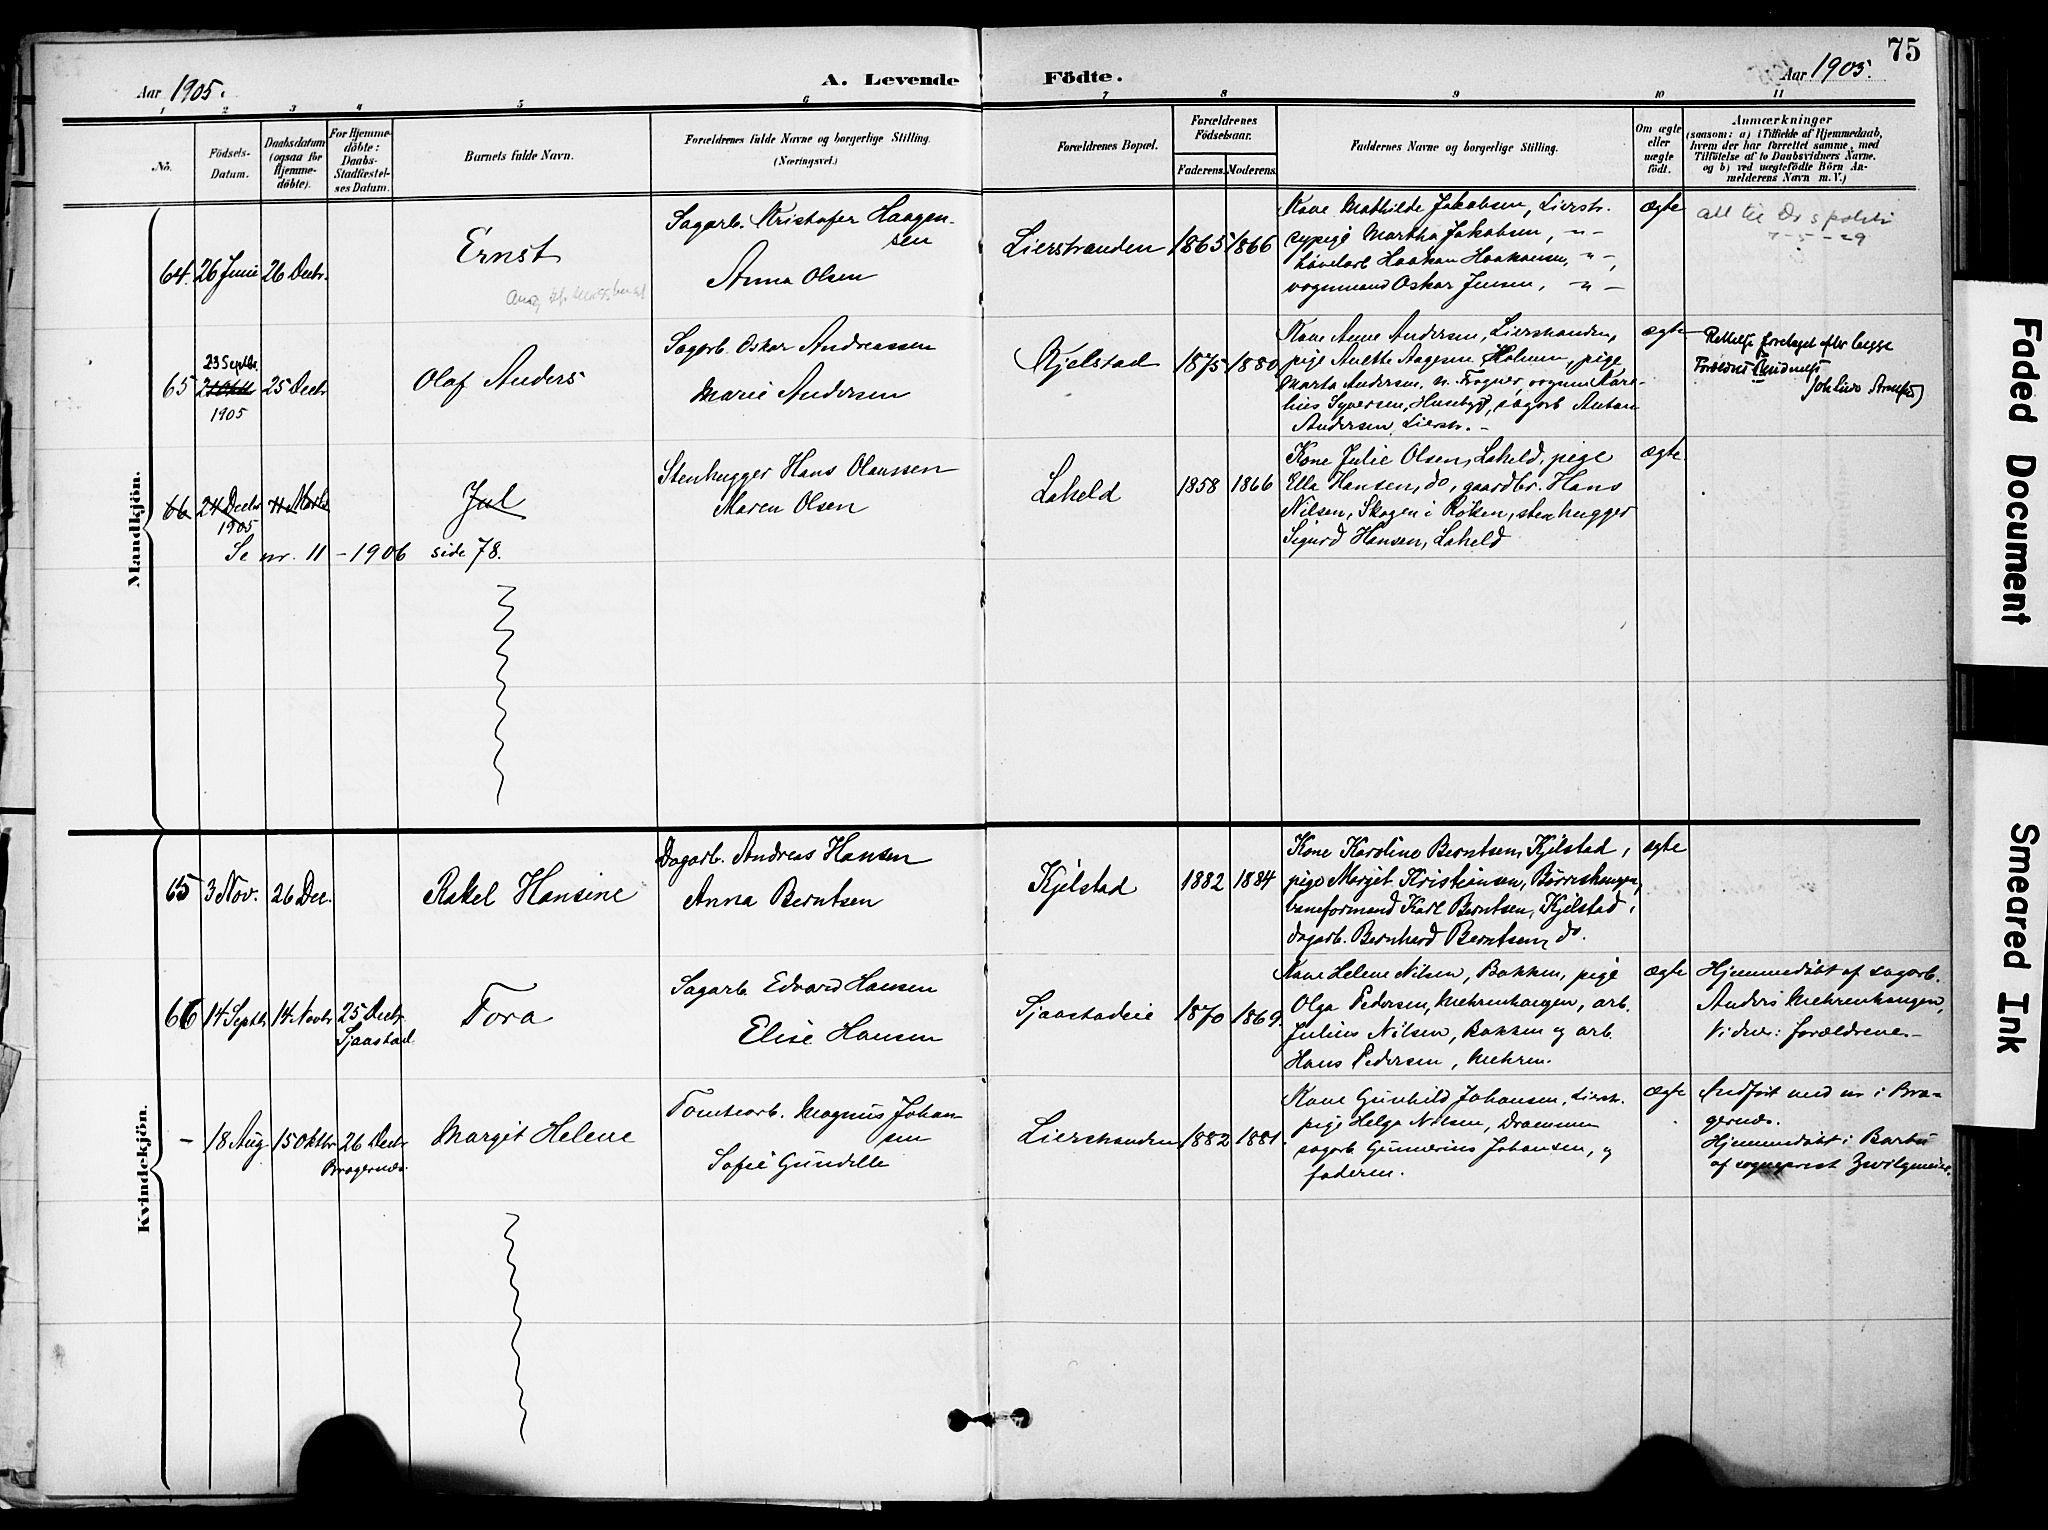 75
Aar 1905.
A. Levende Födte.
Aar 1905.
1 2 3 4 5 6 7 8 9 10 11
No.
Födsels-
Datum.
Daabsdatum
(ogsaa for
Hjemme-
döbte).
For Hjemme-
döbte:
Daabs-
Stadfæstel-
ses Datum.
Barnets fulde Navn.
Forældrenes fulde Navne og borgerlige Stilling.
(Næringsvei.)
Forældrenes Bopæl.
Forældrenes
Födselsaar.
Faderens. Moderens.
Faddernes Navne og borgerlige Stilling.
Om ægte
eller
uægte
födt.
Anmærkninger
(saasom: a) i Tilfælde af Hjemmedaab,
hvem der har forrettet samme, med
Tilföielse af to Daabsvidners Navne.
og b) ved uægtefödte Börn An-
melderens Navn m. V.)
Mandkjön.
64. 26 Juni 26 Decbr.
Ernst
Sagarb. Kristofer Haagen-
sen
Anna Olsen
Lierstranden 1865 1866
Kone Mathilde Jakobsen, Lierstr.
sypige Martha Jakobsen, -"-
høvelarb Haakon Haakonsen, -"-,
vognmand Oskar Jensen, -"-
ægte
att til Dr s politi
7-5-29
65 23 Septbr. 1905 25 Decbr
Olaf Anders
Sagarb. Oskar Andreassen
Marie Andersen
Kjelstad 1875 1880
Kone Anne Andersen, Lierstranden,
pige Anette Aagesen, Holmen, pige
Marta Andersen, n. Frogner, vognm Kare-
lius Syversen, Huseby, sagarb Anton
Andersen, Lierstr. -
ægte
Rettelse foretaget efter begge
Forældres
66 24 Decbr 11 Marts
1905
Jul
Stenhugger Hans Olaussen
Maren Olsen
Laheld 1858 1866
Kone Julie Olsen, Laheld, pige
Ella Hansen, do, gaardbr. Hans
Nilsen, Skogen i Röken, stenhugger
Sigurd Hansen, Laheld
ægte.
Se nr. 11 - 1906 side 78.
Kvindekjön.
65 3 Nov. 26 Dec.
Rakel Hansine
Dagarb. Andreas Hansen
Anna Berntsen
Kjelstad 1882 1884
Kone Karoline Berntsen, Kjelstad,
pige Margit Kristiansen, Börreshaugen,
baneformand Karl Berntsen, Kjelstad,
dagarb. Bernhard Berntsen, do.
ægte
66 14 Septbr 14 Novbr 25 Decbr
Sjaastad
Tora
Sagarb. Edvard Hansen
Elise Hansen
Sjaastadeie 1870 1869.
Kone Helene Nilsen, Bakken, pige
Olga Pedersen, Mehrenhaugen, arb.
Julius Nilsen, Bakken og arb.
Hans Pedersen, Mehren.
ægte
Hjemmedöbt af sagarb.
Anders Mehrenhaugen,
Vidner: forældrene-
- 18 Aug 15 Oktbr 26 Decbr
Bragernæs.
Margit Helene
Tomtearb. Magnus Johan-
sen
Sofie Gundille
Lierstranden 1882 1881
Kone Gunhild Johansen, Lierstr.
pige Helga Nilsen, Drammen
sagarb Gunnerius Johansen, og
faderen.
ægte
Indfört med nr i Bra-
gernæs.
Hjemmedöbt i Barbu
af sogneprest Zwilgmeier.
Faded Document
Smeared Ink